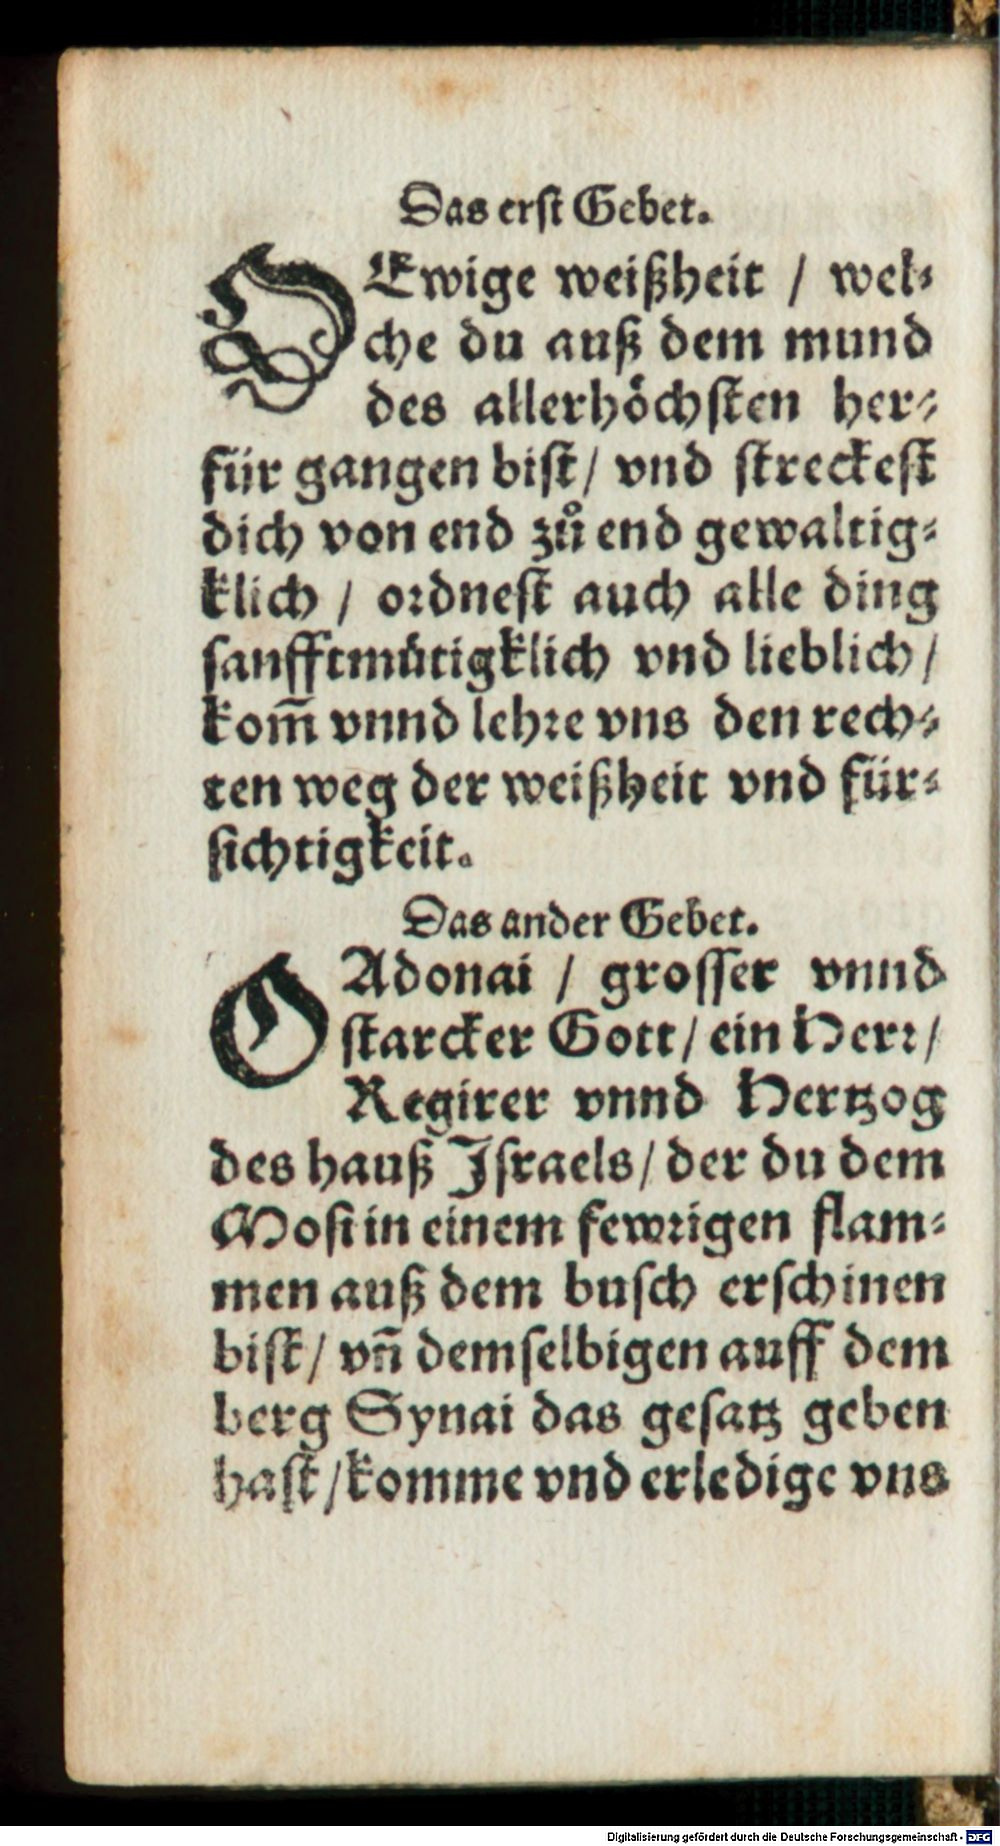 Das erst Gebet.
O Ewige weißheit / wel⸗
che du auß dem mund
des allerhöchsten her⸗
für gangen bist / vnd streckest
dich von end zů end gewaltig⸗
klich / ordnest auch alle ding
sanfftmütigklich vnd lieblich /
kom̃ vnnd lehre vns den rech⸗
ten weg der weißheit vnd für⸗
sichtigkeit.
Das ander Gebet.
O Adonai / grosser vnnd
starcker Gott / ein Herr /
Regirer vnnd Hertzog
des hauß Israels / der du dem
Mosi in einem fewrigen flam⸗
men auß dem busch erschinen
bist / vñ demselbigen auff dem
berg Synai das gesatz geben
hast / komme vnd erledige vns
Digitalisierung gefördert durch die Deutsche Forschungsgemeinschaft - DFG